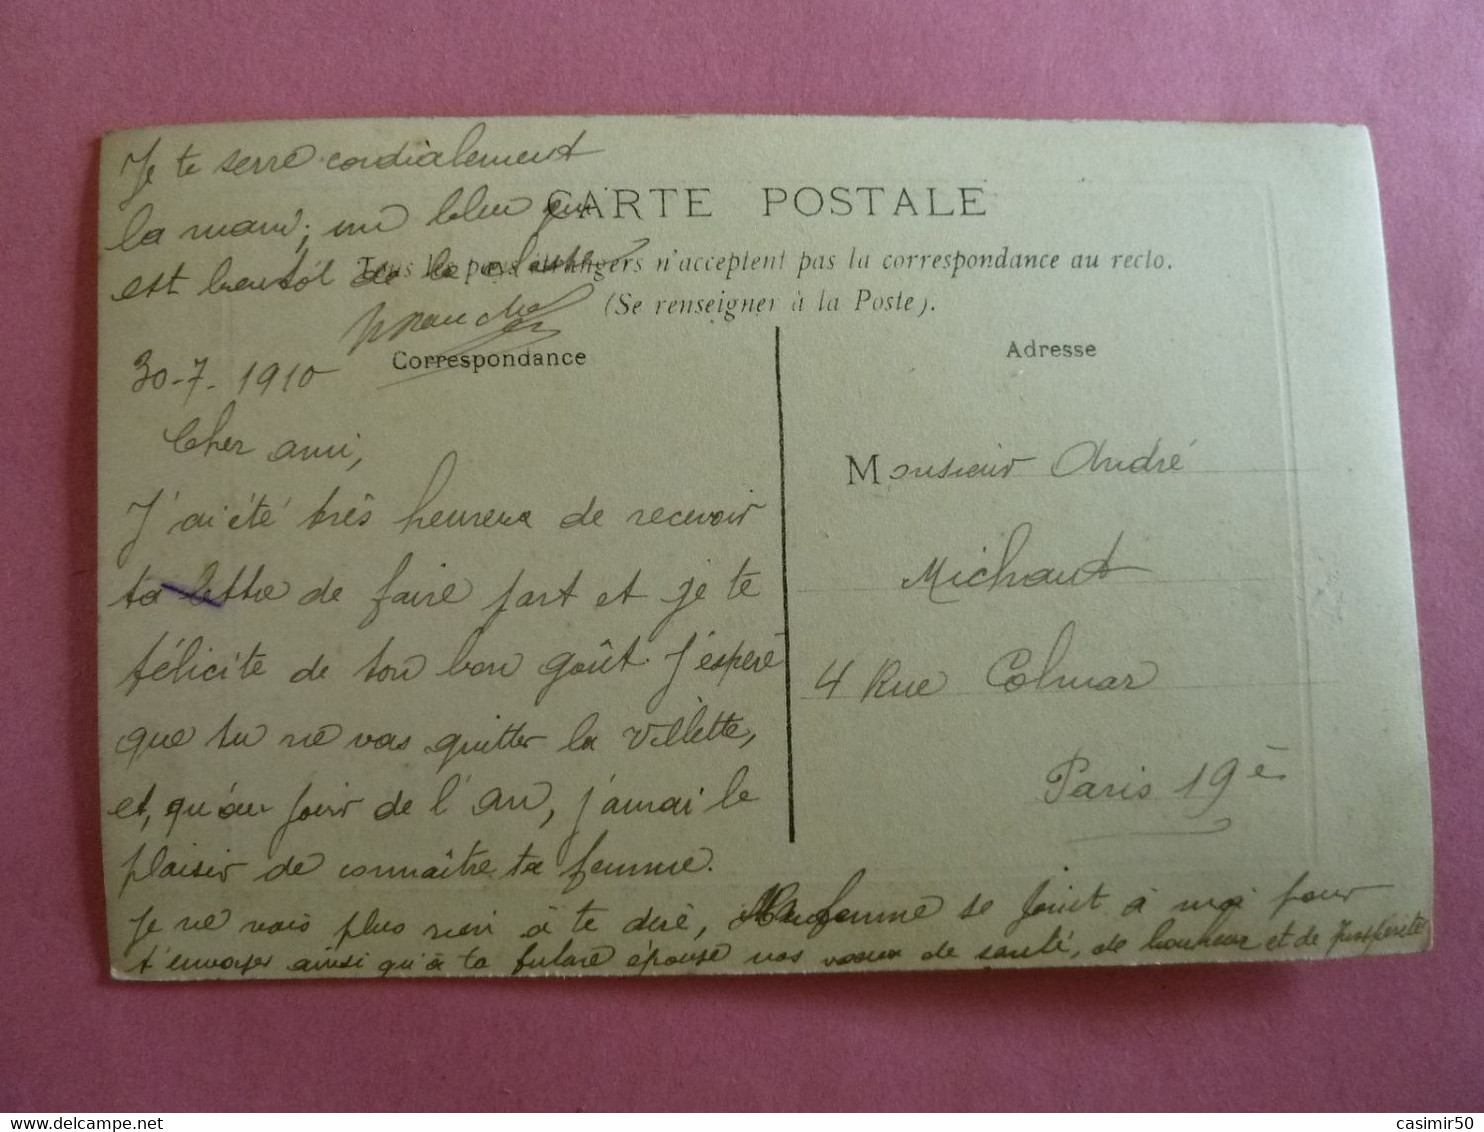 Je te serre cordialement
la main, un bleu qui
est bientôt de la classe
CARTE POSTALE
Tous les pays étrangers n'acceptent pas la correspondance au recto.
(Se renseigner à la Poste).
Correspondance
30-7-1910
Cher ami,
J'ai été très heureux de recevoir
ta lettre de faire part et je te
félicite de ton bon goût. J'espère
que tu ne vas quitter la Villette,
et, qu'au jour de l'an, j'aurai le
plaisir de connaître ta femme.
Je ne vais plus rien à te dire, Ma femme se joint à moi pour
t'envoyer ainsi qu'à ta future épouse nos voeux de santé, de bonheur et de prospérité
Adresse
Monsieur André
Michaut
4 Rue Colmar
Paris 19è
casimir50